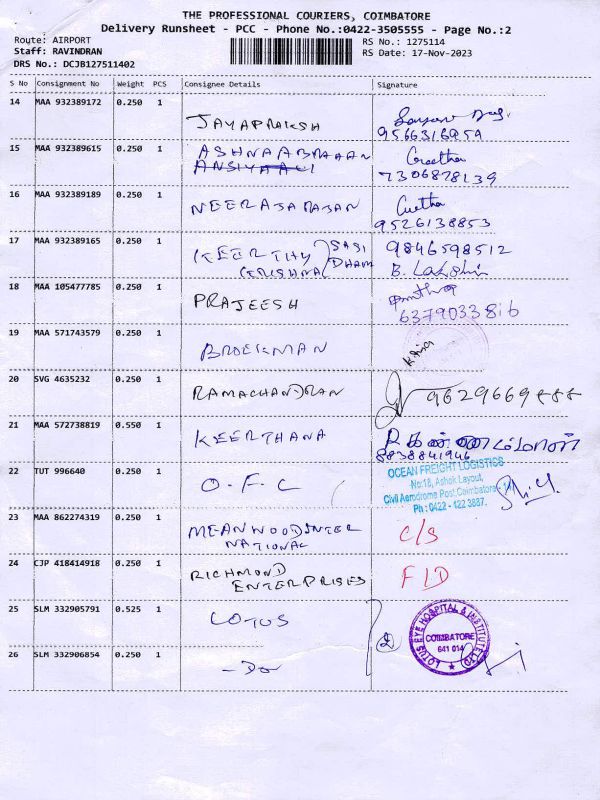 THE PROFESSIONAL COURIERS, COIMBATORE
Delivery Runsheet - PCC - Phone No.:0422-3505555 - Page No.:2
Route: AIRPORT
RS No.: 1275114
Staff: RAVINDRAN
RS Date: 17-Nov-2023
DRS No.: DCJB127511402
S No Consignment No Weight PCS Consignee Details Signature
14 MAA 932389172 0.250 1 JAYAPRAKSH
9566316959
15 MAA 932389615 0.250 1
Geetha
7306878139
16 MAA 932389189 0.250 1 NEERAJARAJAN
Geetha
9526138853
17 MAA 932389165 0.250 1 KEERTHY SASI 9846598512
KRISHNA DHAM B. Lakshmi
18 MAA 105477785 0.250 1 PRAJEESH
6379033816
19 MAA 571743579 0.250 1 BROEKMAN
20 SVG 4635232 0.250 1 RAMACHANDRAN
21 MAA 572738819 0.550 1 KEERTHANA
8838841946
22 TUT 996640 0.250 1 O.F.C
OCEAN FREIGHT LOGISTICS
No:18, Ashok Layout,
Civil Aerodrome Post, Coimbatore - 14
Ph : 0422 - 122 3887.
23 MAA 862274319 0.250 1 MEANWOOD INTER C/S
NATIONAL
24 CJP 418414918 0.250 1 RICHMOND F/D
ENTERPRISES
25 SLM 332905791 0.525 1 LOTUS
LOTUS EYE HOSPITAL & INSTITUTE LTD
COIMBATORE
641 014
26 SLM 332906854 0.250 1 - Do